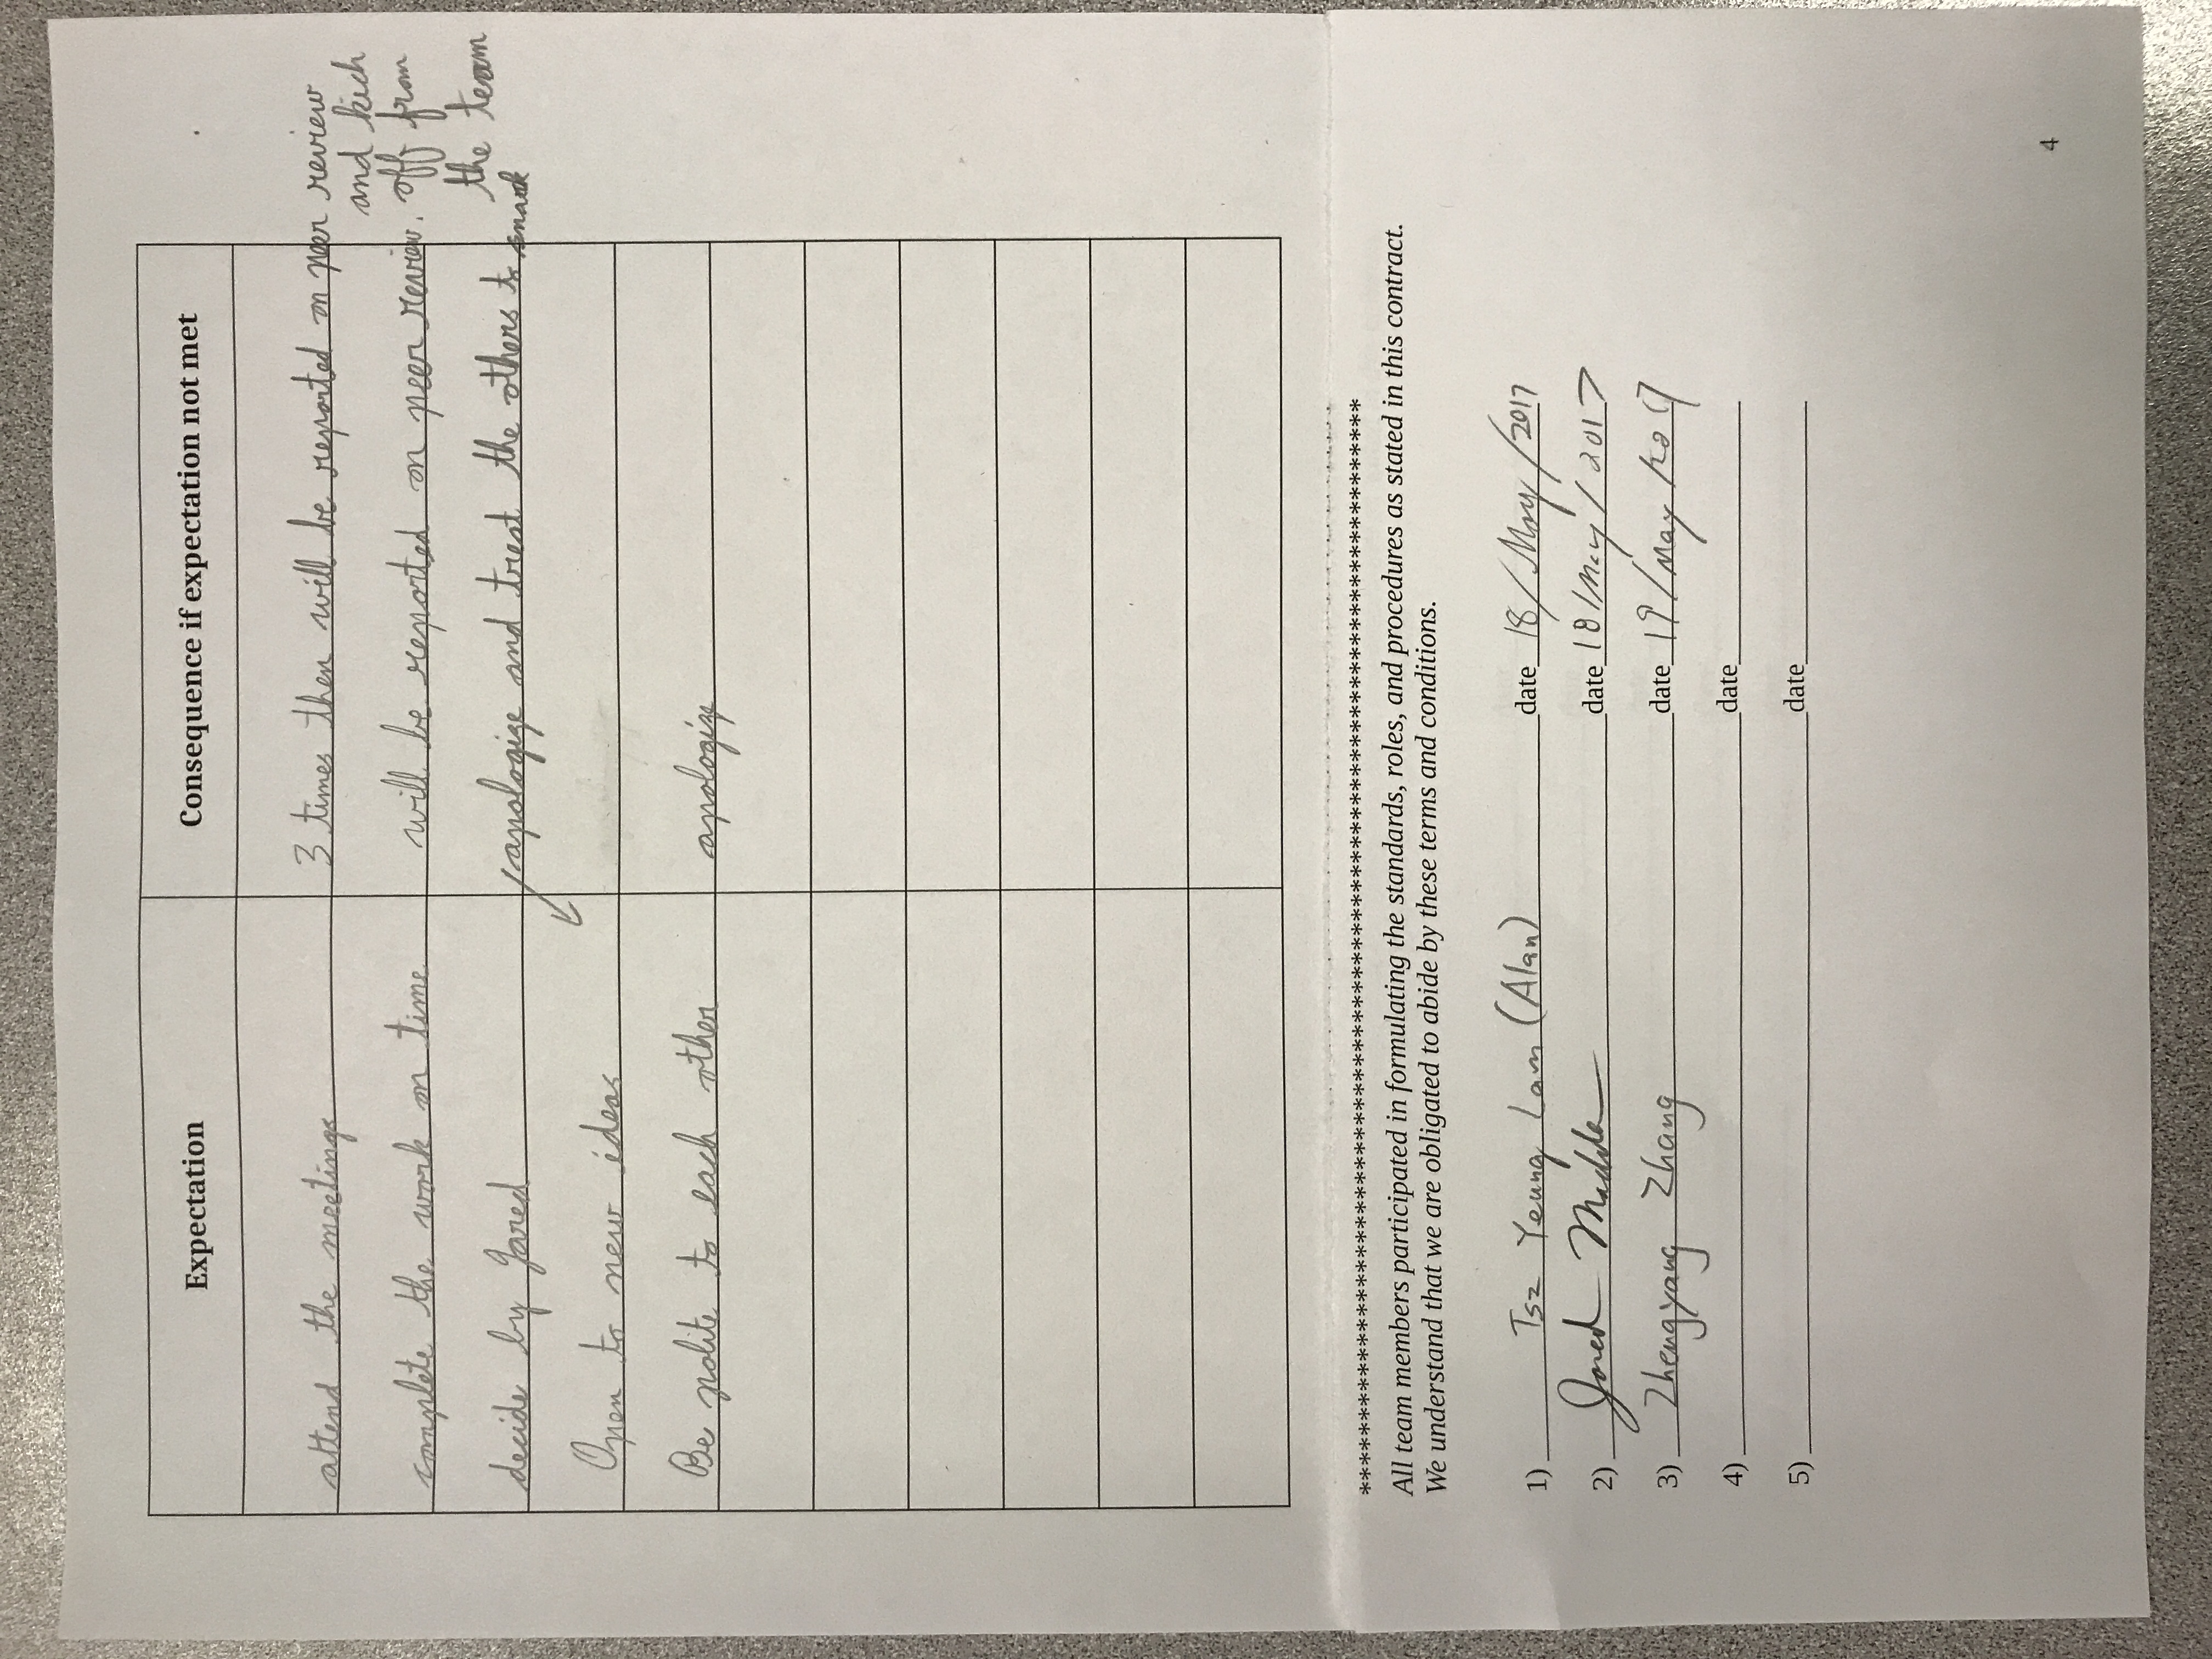 Expectation Consequence if expectation not met
attend the meetings 3 times then will be reported on peer review
and kick
complete the work on time will be reported on peer review. off from
the team
decide by Jared apologize and treat the others to snack
Open to new ideas
Be polite to each other apologize
**************************************************************************
All team members participated in formulating the standards, roles, and procedures as stated in this contract.
We understand that we are obligated to abide by these terms and conditions.
1) Tsz Yeung Lam (Alan) date 18/May/2017
2) Jared date 18/May/2017
3) Zhengyang Zhang date 19/May/2017
4) date
5) date
4